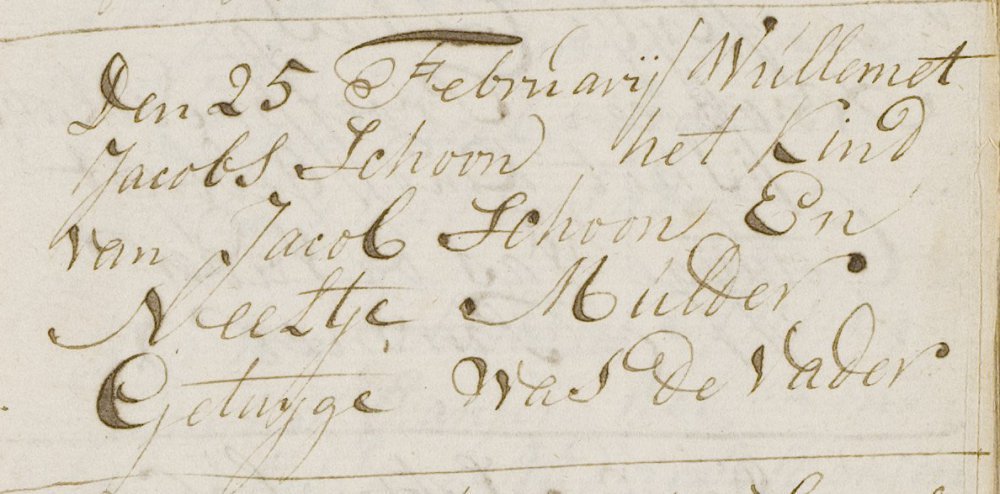 Den 25 Februarij Willemet
Jacobs Schoon het Kind
van Jacob Schoon En
Neeltje Mulder
Getuijge was de vader